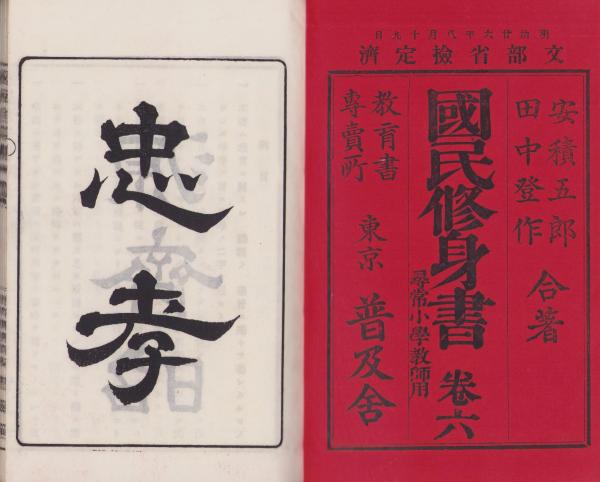 明治廿六年八月十九日
文部省檢定濟
安積五郎
田中登作
合著
國民修身書
卷六
尋常小學教師用
教育書
專賣所
東京
普及舍
忠孝